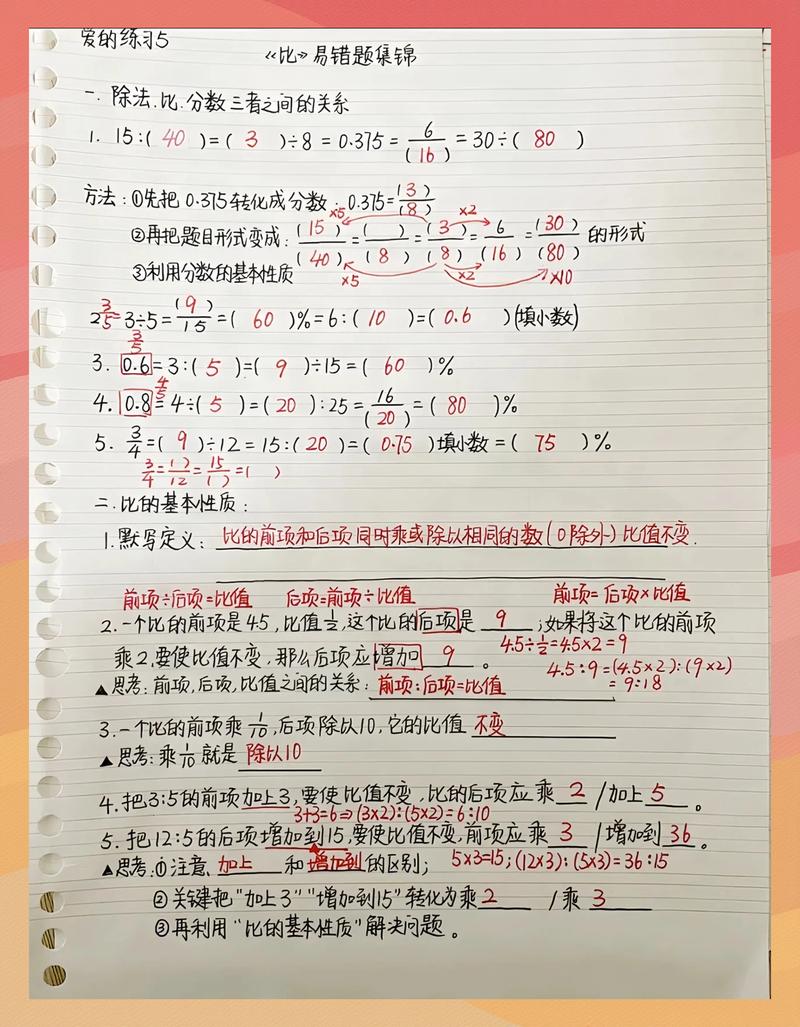 爱的练习5
《比》易错题集锦
一、除法.比.分数三者之间的关系
1. 15:( 40 )=( 3 )÷8=0.375=6/(16)=30÷( 80 )
方法:①先把0.375转化成分数:0.375=(3)/(8)
②再把题目形式变成:(15)/(40)=( )/(8)=(3)/(8)=6/(16)=(30)/(80)的形式
×5 ×2
③利用分数的基本性质
×5 ×2 ×10
2. 3/5=3÷5=(9)/15=( 60 )%=6:( 10 )=( 0.6 )(填小数)
3/5
3. 0.6=3:( 5 )=( 9 )÷15=( 60 )%
4/5
4. 0.8=4÷( 5 )=( 20 ):25=16/(20)=( 80 )%
5. 3/4=( 9 )÷12=15:( 20 )=( 0.75 )填小数=( 75 )%
3/4=( )/12=15/( )=( )
二.比的基本性质:
1.默写定义:比的前项和后项同时乘或除以相同的数(0除外)比值不变.
前项÷后项=比值 后项=前项÷比值 前项=后项×比值
2.一个比的前项是4.5,比值1/2,这个比的后项是 9 ;如果将这个比的前项
4.5÷1/2=4.5×2=9
乘2,要使比值不变,那么后项应增加 9 。
4.5:9=(4.5×2):(9×2)
=9:18
▲思考:前项,后项,比值之间的关系:前项:后项=比值
3.一个比的前项乘1/10,后项除以10,它的比值 不变
▲思考:乘1/10就是 除以10
4.把3:5的前项加上3,要使比值不变,比的后项应乘 2 /加上 5 。
3+3=6⇒(3×2):(5×2)=6:10
5.把12:5的后项增加到15,要使比值不变,前项应乘 3 /增加到 36 。
▲思考:①注意、加上 和 增加到的区别; 5×3=15;(12×3):(5×3)=36:15
②关键把"加上3""增加到15"转化为乘 2 /乘 3
③再利用"比的基本性质"解决问题。